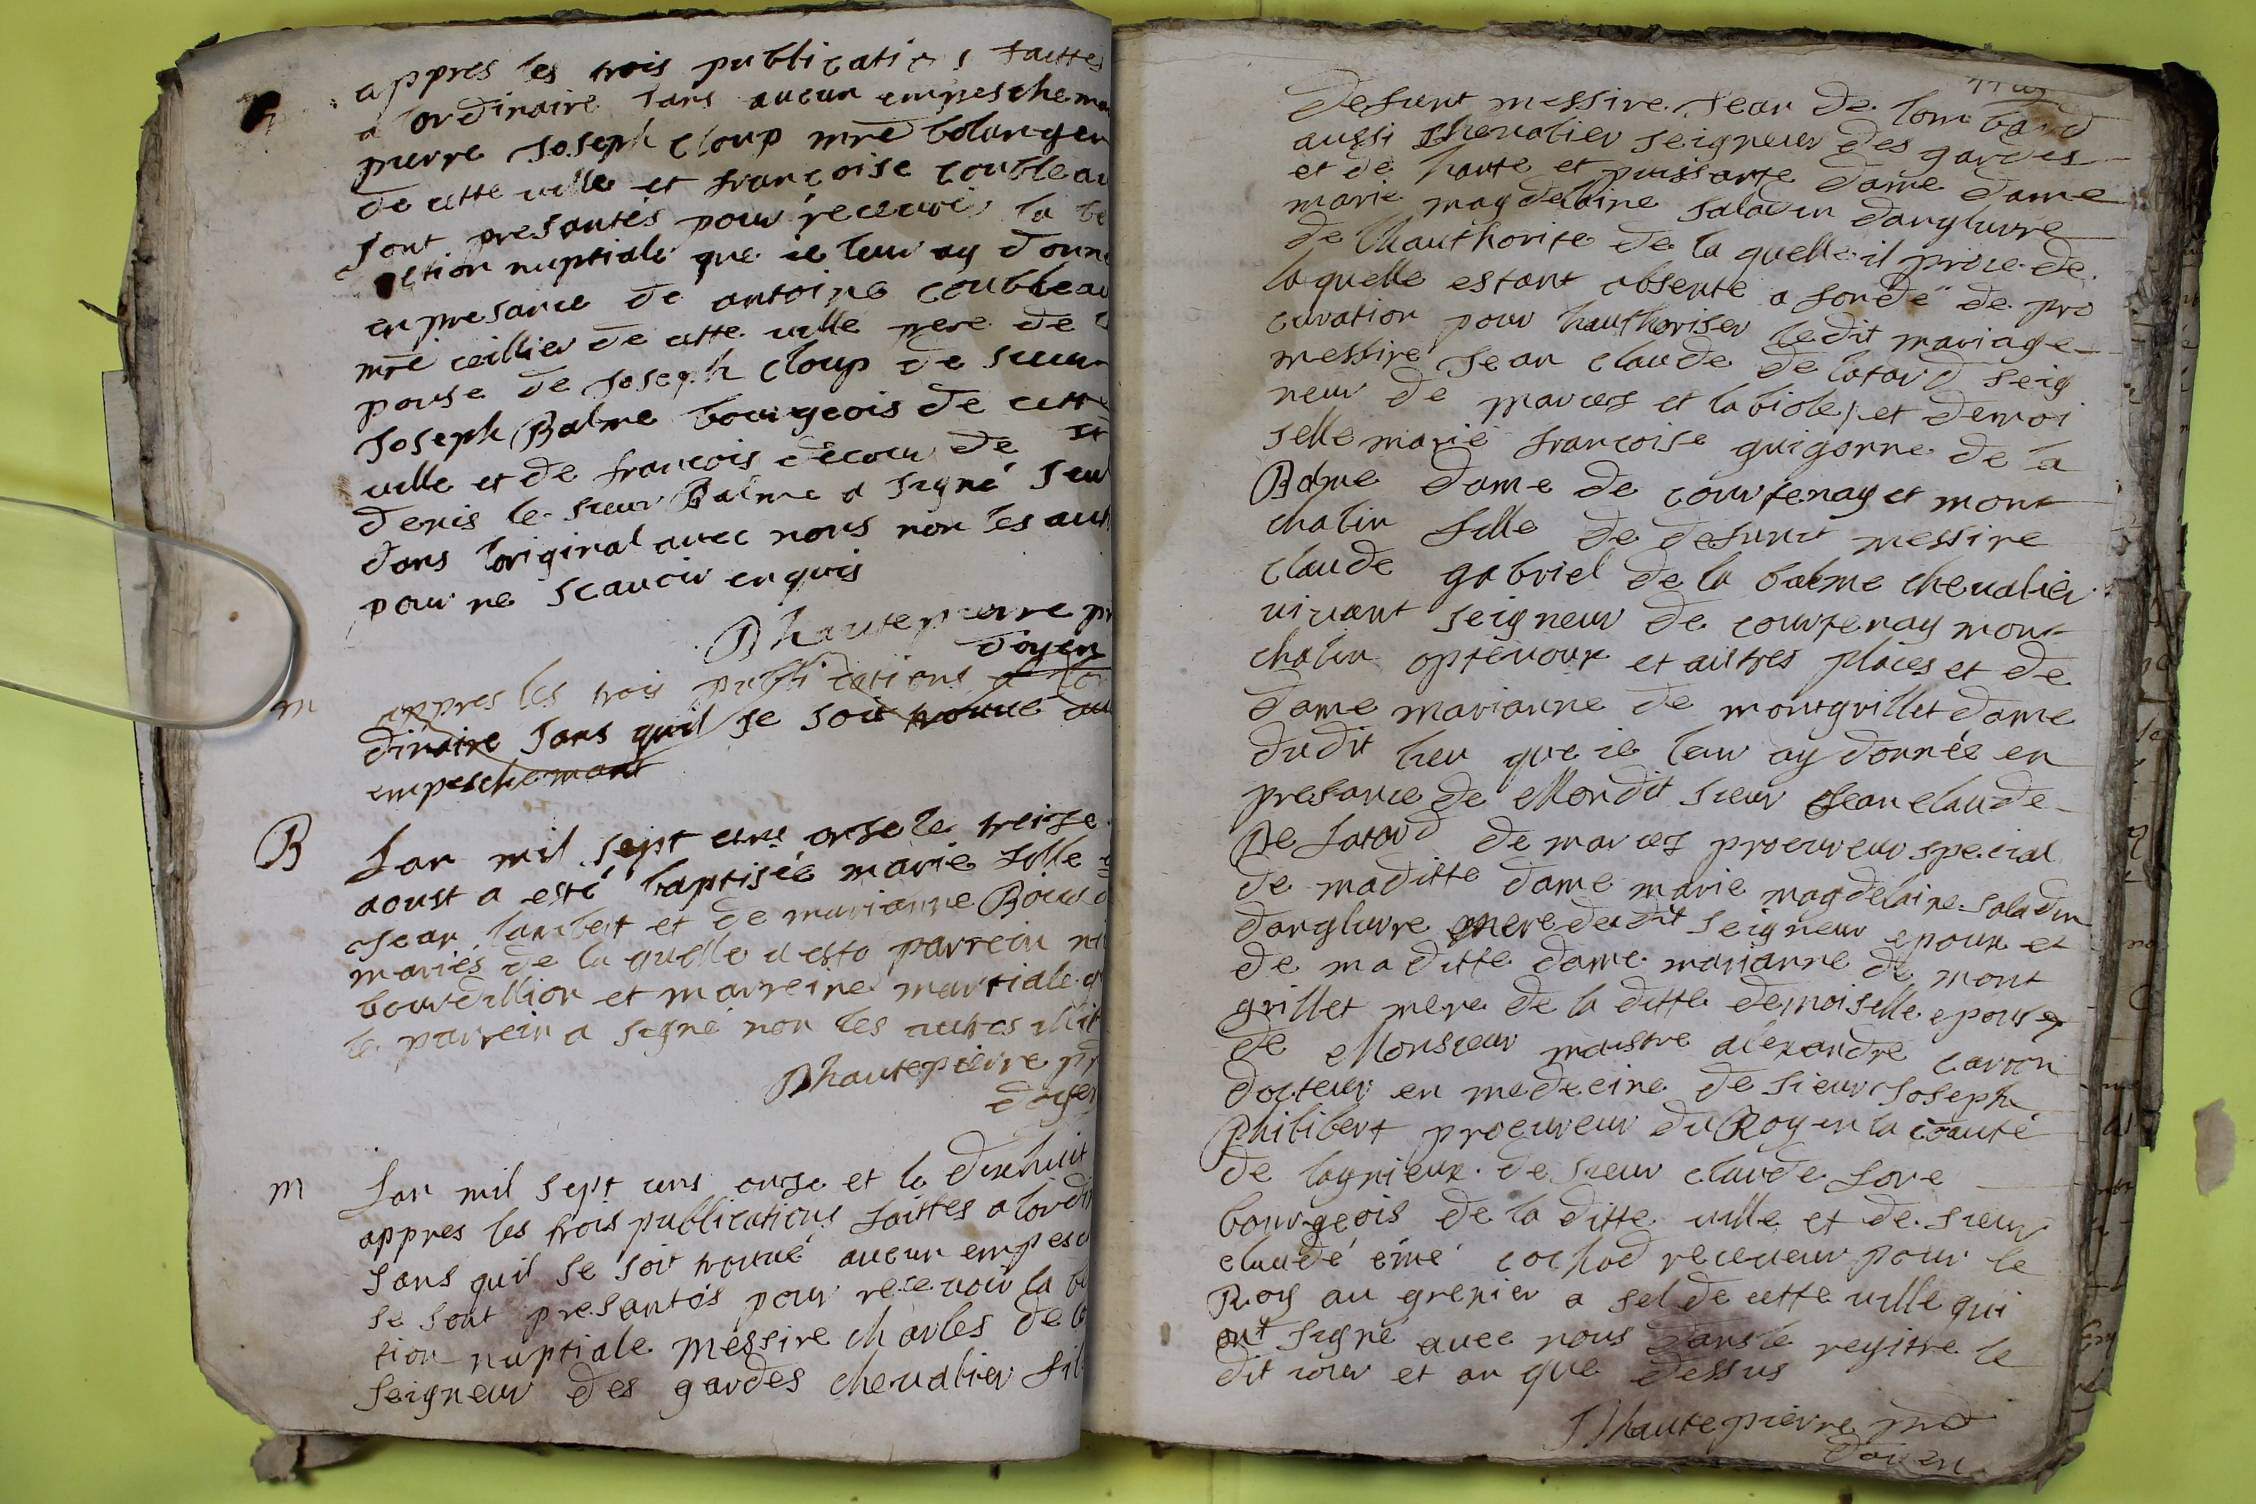 appres les trois publications faittes
a lordinaire sans aucun empeschema
pierre Joseph Cloup mre bolanger
de cette ville et françoise Coubleau
sont presantés pour recevoir la be
ction nuptiale que ie leur ay donn
en presance de antoine Coubleau
mre ceillier de cette ville pere de
pouse de Joseph Cloup de sieur
Joseph Balme bourgeois de cette
ville et de francois decour de st
denis le sieur Balme a signé seul
dans loriginal avec nous non les aut
pour ne scavoir enquis
Dhautepierre pr
doyen
m
appres les trois publications a lor
dinaire sans quil se soit trouve au
empeschemant
B
Lan mil sept cens onse le treise
aoust a esté baptisée marie fille
Jean lambert et de marianne
mariés de la quelle a esto parrein
bourdillion et marreine martiale
le parrein a signé non les autres illit
Dhautepierre pr
doyen
m
Lan mil sept cens onse et le dixhuit
appres les trois publications faittes a lordi
sans quil se soit trouué aucun empesc
se sont presantés pour recevoir la be
tion nuptiale messire charles de lo
seigneur des gardes chevalier fils
defunt messire Jean de lombard
aussi chevalier seigneur des gardes
et de haute et puissante dame dame
marie magdelaine saladin danglure
de lhauthorite de la quelle il procede
laquelle estant absente a fondé de pro
curation pour hauthoriser ledit mariage
messire Jean claude de latard seig
neur de marces et labiole, et demoi
selle marie francoise guigonne de la
Balme dame de courtenay et mont
chalin fille de defunct messire
claude gabriel de la balme chevalier
vivant seigneur de courtenay mont
chalin optevour et autres places et de
dame marianne de montgrillet dame
dudit lieu que ie leur ay donnée en
presance de Mondit sieur Jean claude
De latard de marces procureur special
de maditte dame marie magdelaine saladin
danglure mere dudit seigneur epoux et
de maditte dame marianne de mont
grillet mere de la ditte demoiselle epouse
de Monsieur maistre alexandre carron
docteur en medecine de sieur Joseph
Philibert procureur du Roy en la coauté
de lagnieux de sieur claude fore
bourgeois de la ditte ville et de sieur
claude eimé cochod receveur pour le
Roy au grenier a sel de cette ville qui
ont signé avec nous dans le registre le
dit iour et an que dessus
Dhautepierre
doyen